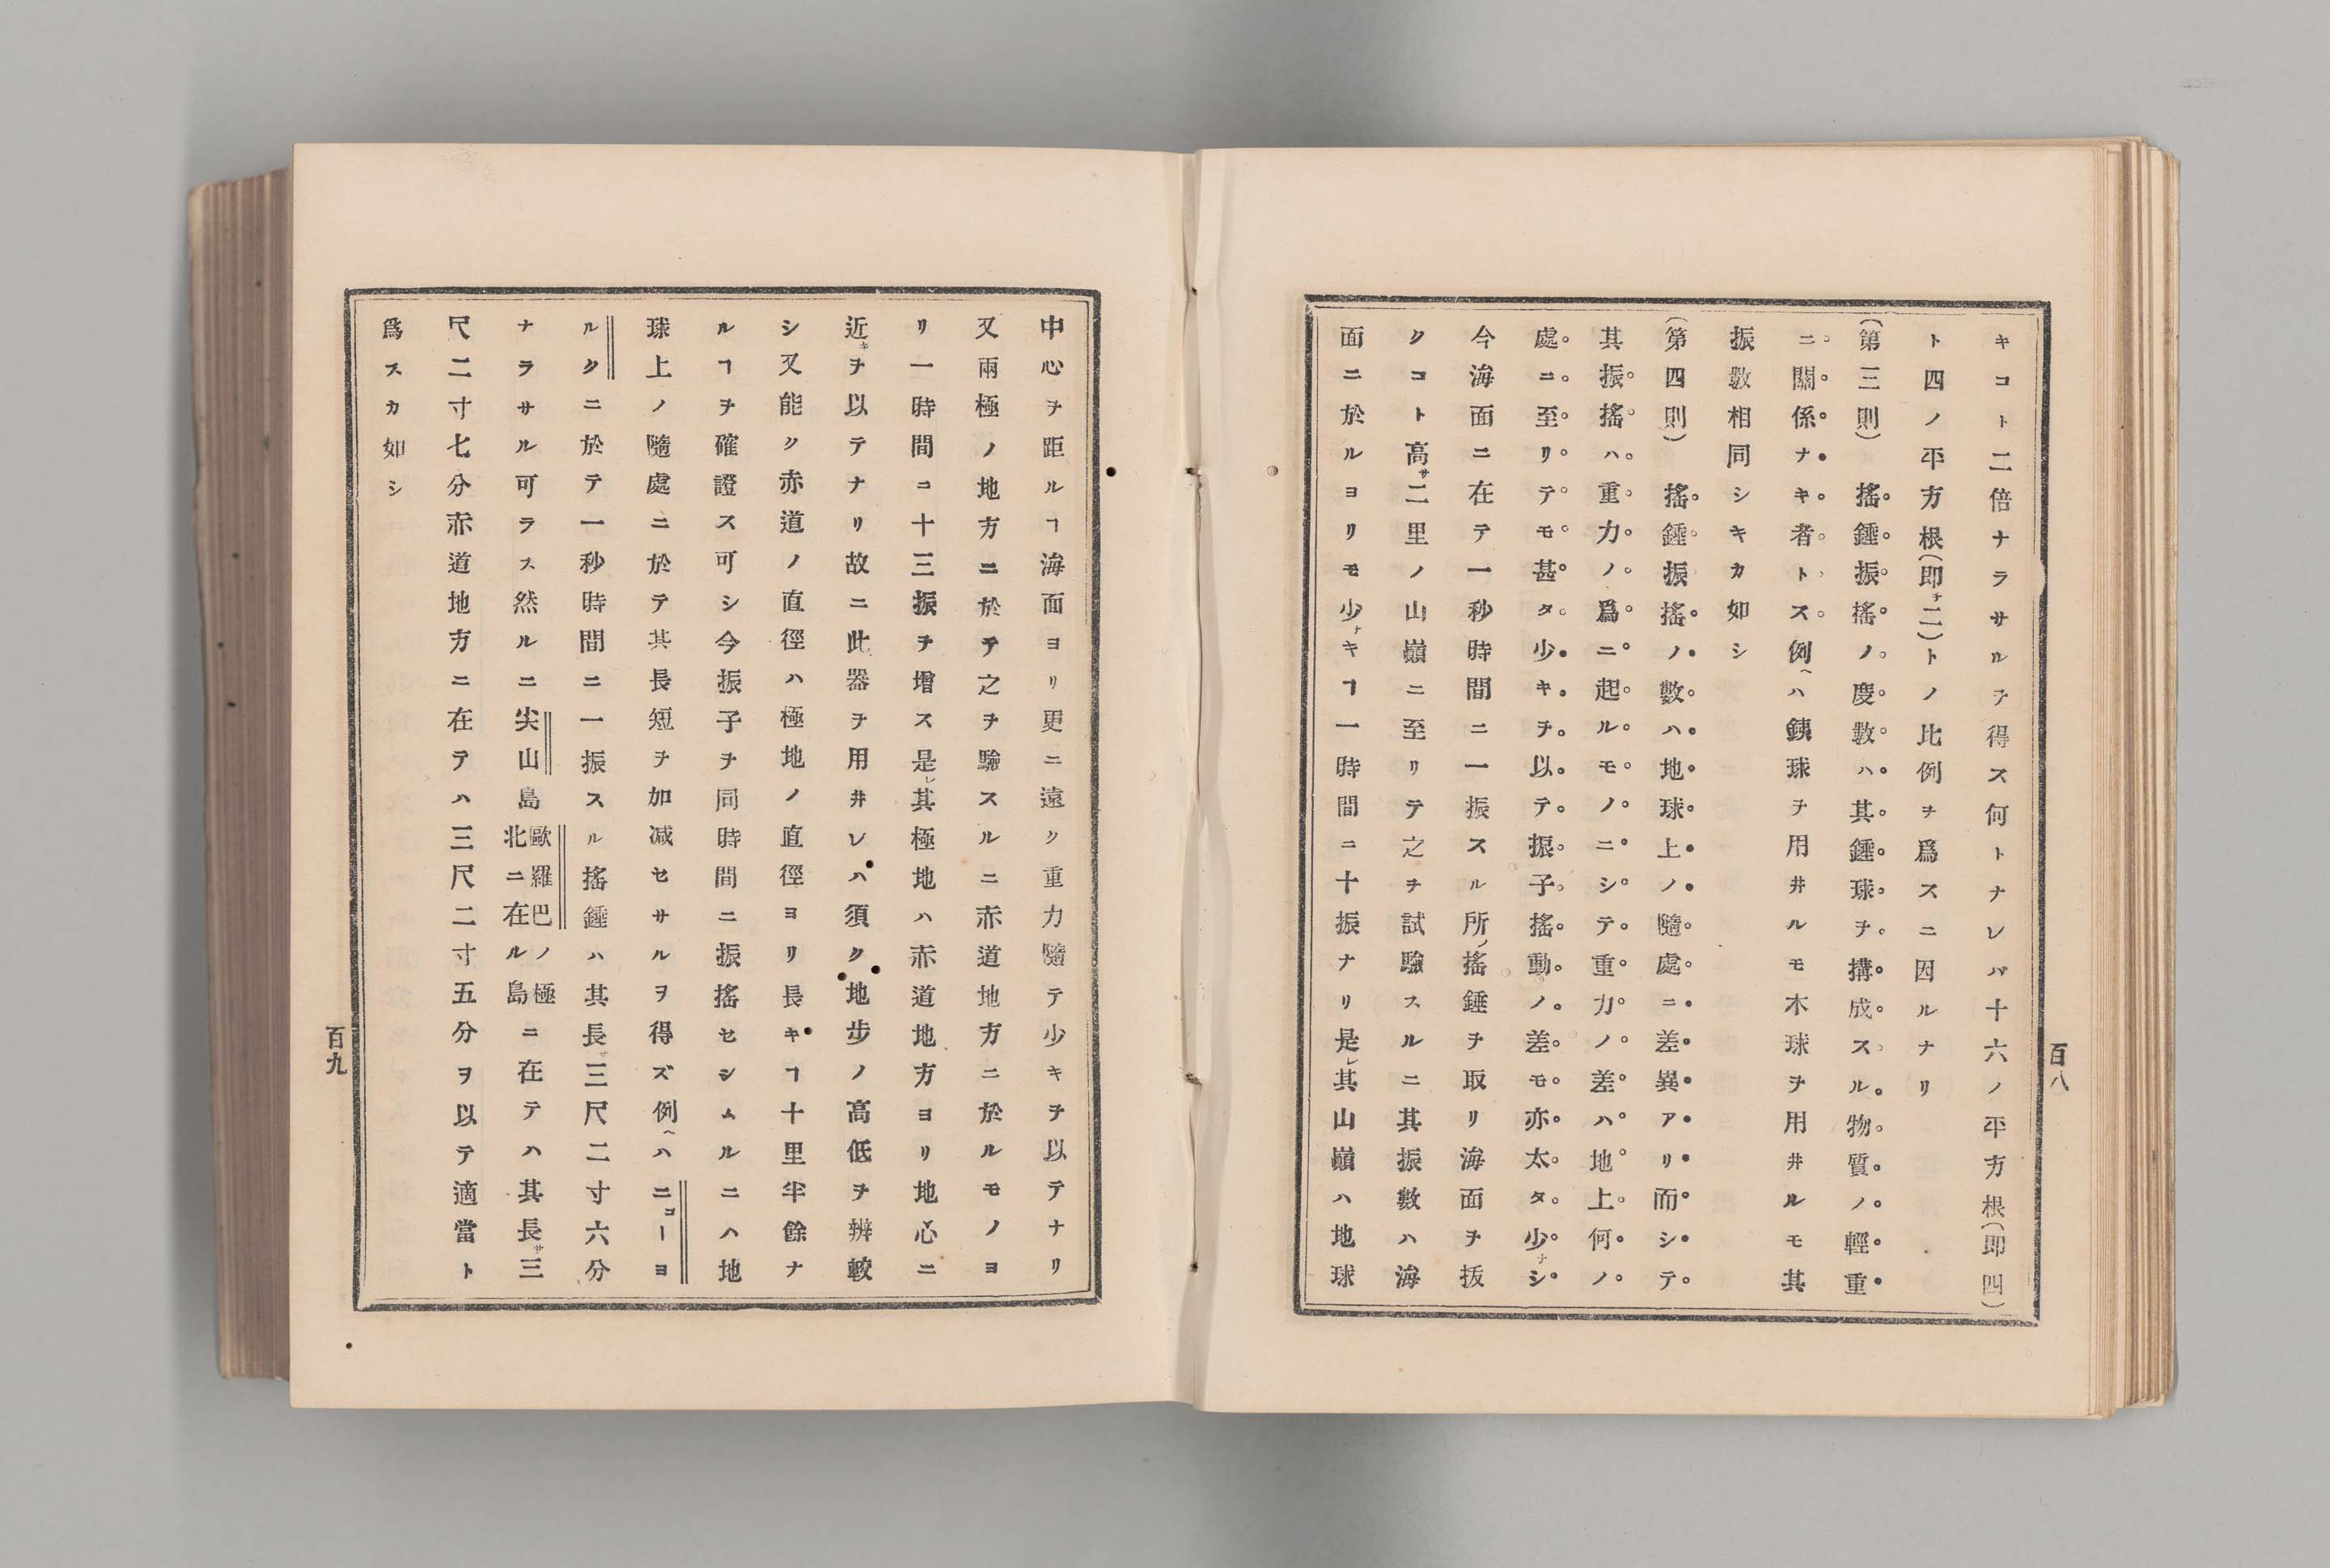 百八
キコト二倍ナラサルヲ得ス何トナレバ十六ノ平方根(即四)
ト四ノ平方根(即チ二)トノ比例ヲ爲スニ因ルナリ
(第三則)搖錘振搖ノ度數ハ其錘球ヲ搆成スル物質ノ輕重
ニ關係ナキ者トス例ヘハ銕球ヲ用井ルモ木球ヲ用井ルモ其
振數相同シキカ如シ
(第四則)搖錘振搖ノ數ハ地球上ノ隨處ニ差異アリ而シテ
其振搖ハ重力ノ爲ニ起ルモノニシテ重力ノ差ハ地上何ノ
處ニ至リテモ甚タ少キヲ以テ振子搖動ノ差モ亦太タ少ナシ
今海面ニ在テ一秒時間ニ一振スル所ノ搖錘ヲ取リ海面ヲ抜
クコト高サ二里ノ山巓ニ至リテ之ヲ試驗スルニ其振數ハ海
面ニ於ルヨリモ少ナキヿ一時間ニ十振ナリ是レ其山巓ハ地球
中心ヲ距ルヿ海面ヨリ更ニ遠ク重力隨テ少キヲ以テナリ
又兩極ノ地方ニ於テ之ヲ驗スルニ赤道地方ニ於ルモノヨ
リ一時間コ十三振ヲ增ス是レ其極地ハ赤道地方ヨリ地心ニ
近キヲ以テナリ故ニ此器ヲ用井レハ須ク地步ノ高低ヲ辨較
シ又能ク赤道ノ直徑ハ極地ノ直徑ヨリ長キヿ十里半餘ナ
ルヿヲ確證ス可シ今振子ヲ同時間ニ振搖セシムルニハ地
球上ノ隨處ニ於テ其長短ヲ加減セサルヲ得ズ例ヘハニユーヨ
ルクニ於テ一秒時間ニ一振スル搖錘ハ其長サ三尺二寸六分
ナラサル可ラス然ルニ尖山島歐羅巴ノ極北ニ在ル島ニ在テハ其長サ三
尺二寸七分赤道地方ニ在テハ三尺二寸五分ヲ以テ適當ト
爲スカ如シ
百九